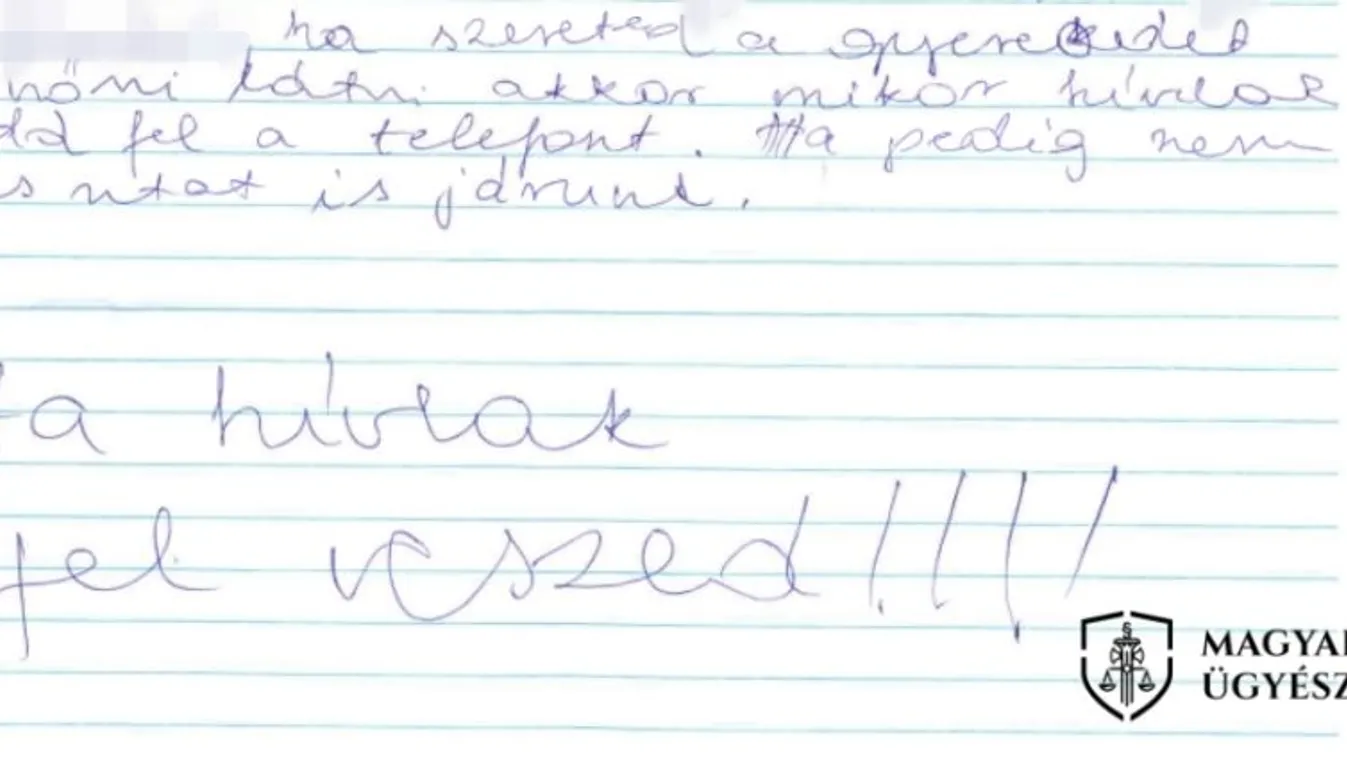 ha szereted a gyerekedet
nőni látni akkor mikor hívlak
dd fel a telefont. Ha pedig nem
s utat is járunk.
a hívlak
fel veszed!!!!
MAGYAR
ÜGYÉSZ